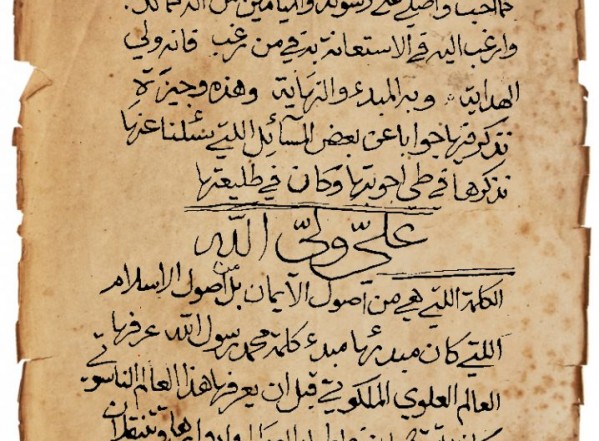 كما احب واصلي على رسوله والميامين من آله كذلك.
وارغب اليه في الاستعانة به في من رغب فانه ولي
الهداية وبه المبدء والنهاية وهذه وجيزة
نذكر فيها جوابا عن بعض المسائل اللتي سئلنا عنها
نذكرها في طي اجوبتها وكان في طليعتها
عليّ وليّ الله
الكلمة اللتي هي من اصول الآيمان بل من اصول الاسلام
اللتي كان مبدئها مبدء كلمة محمد رسول الله عرفها
العالم العلوي الملكوتي قبل ان يعرفها هذا العالم الناسوتي